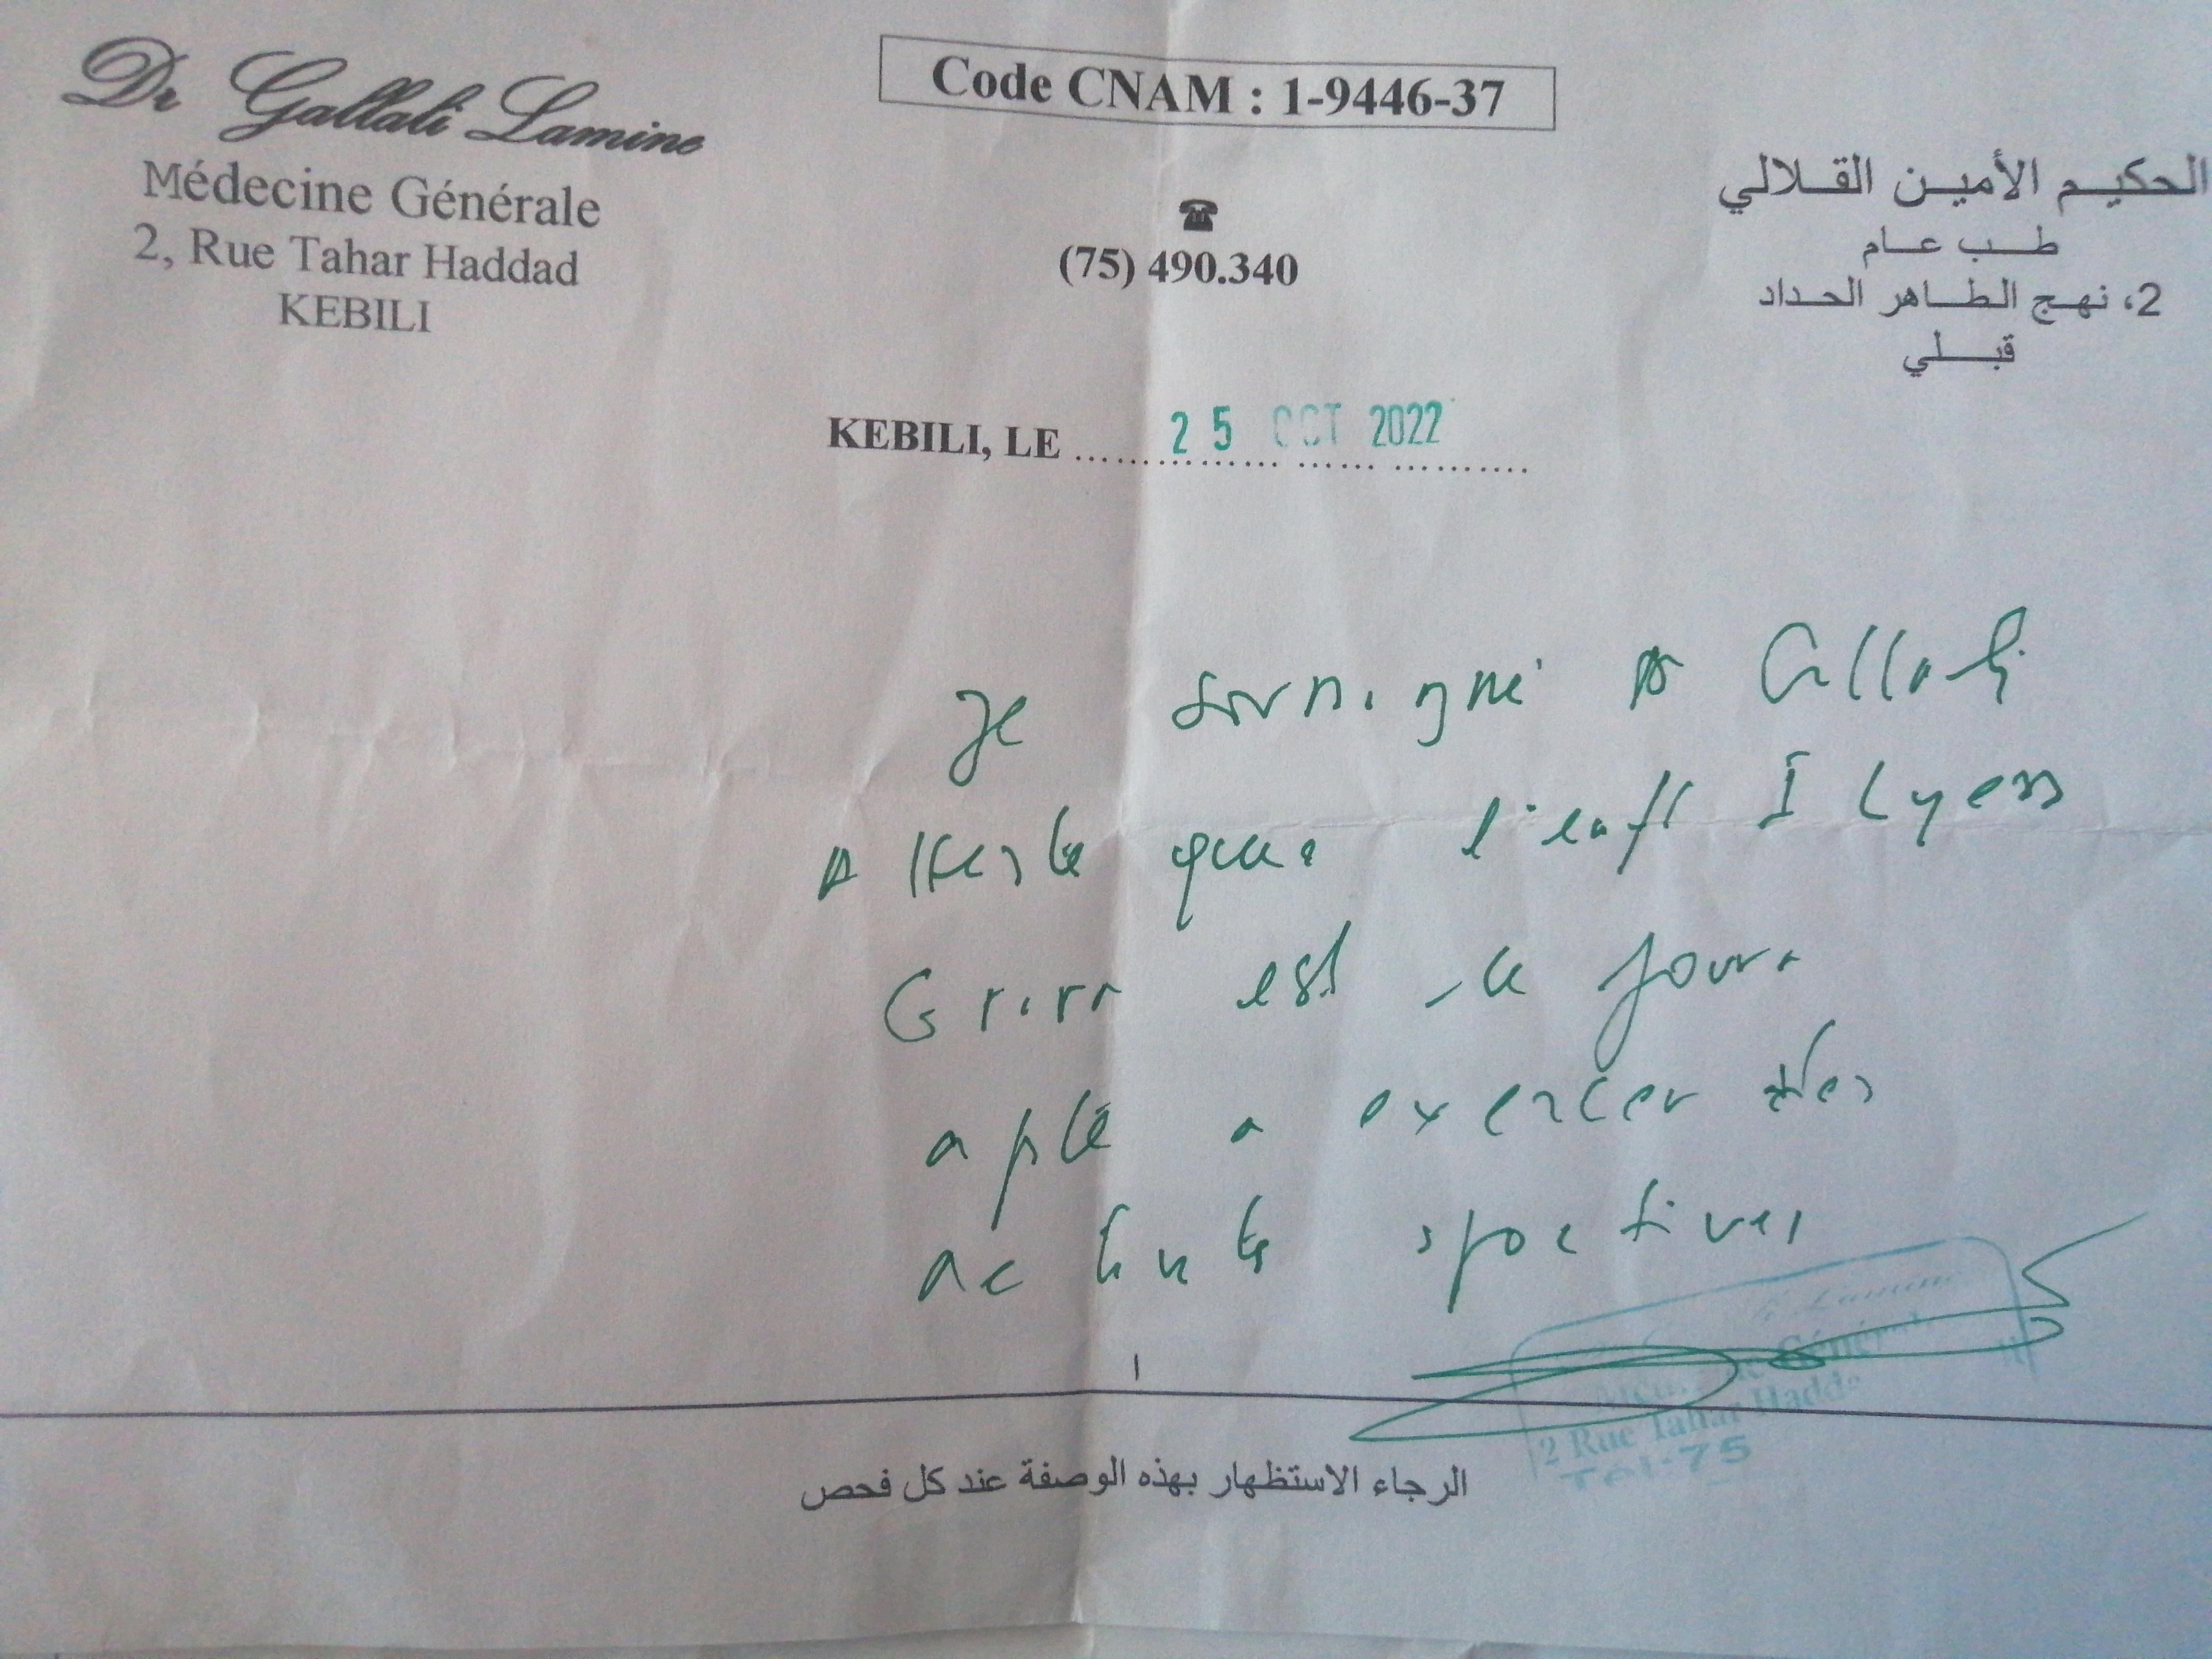 Dr Gallali Lamine
Médecine Générale
2, Rue Tahar Haddad
KEBILI
Code CNAM : 1-9446-37
☎
(75) 490.340
الحكيم الأمين القلالي
طب عام
2، نهج الطاهر الحداد
قبلي
KEBILI, LE 25 OCT 2022
Je soussigné Dr Gallali
Atteste que l'enft Ilyess
est ce jour
apte a exercer des
activités sportives
Lamine
Médecine Générale
2 Rue Tahar Hadda
Tél.75
الرجاء الاستظهار بهذه الوصفة عند كل فحص